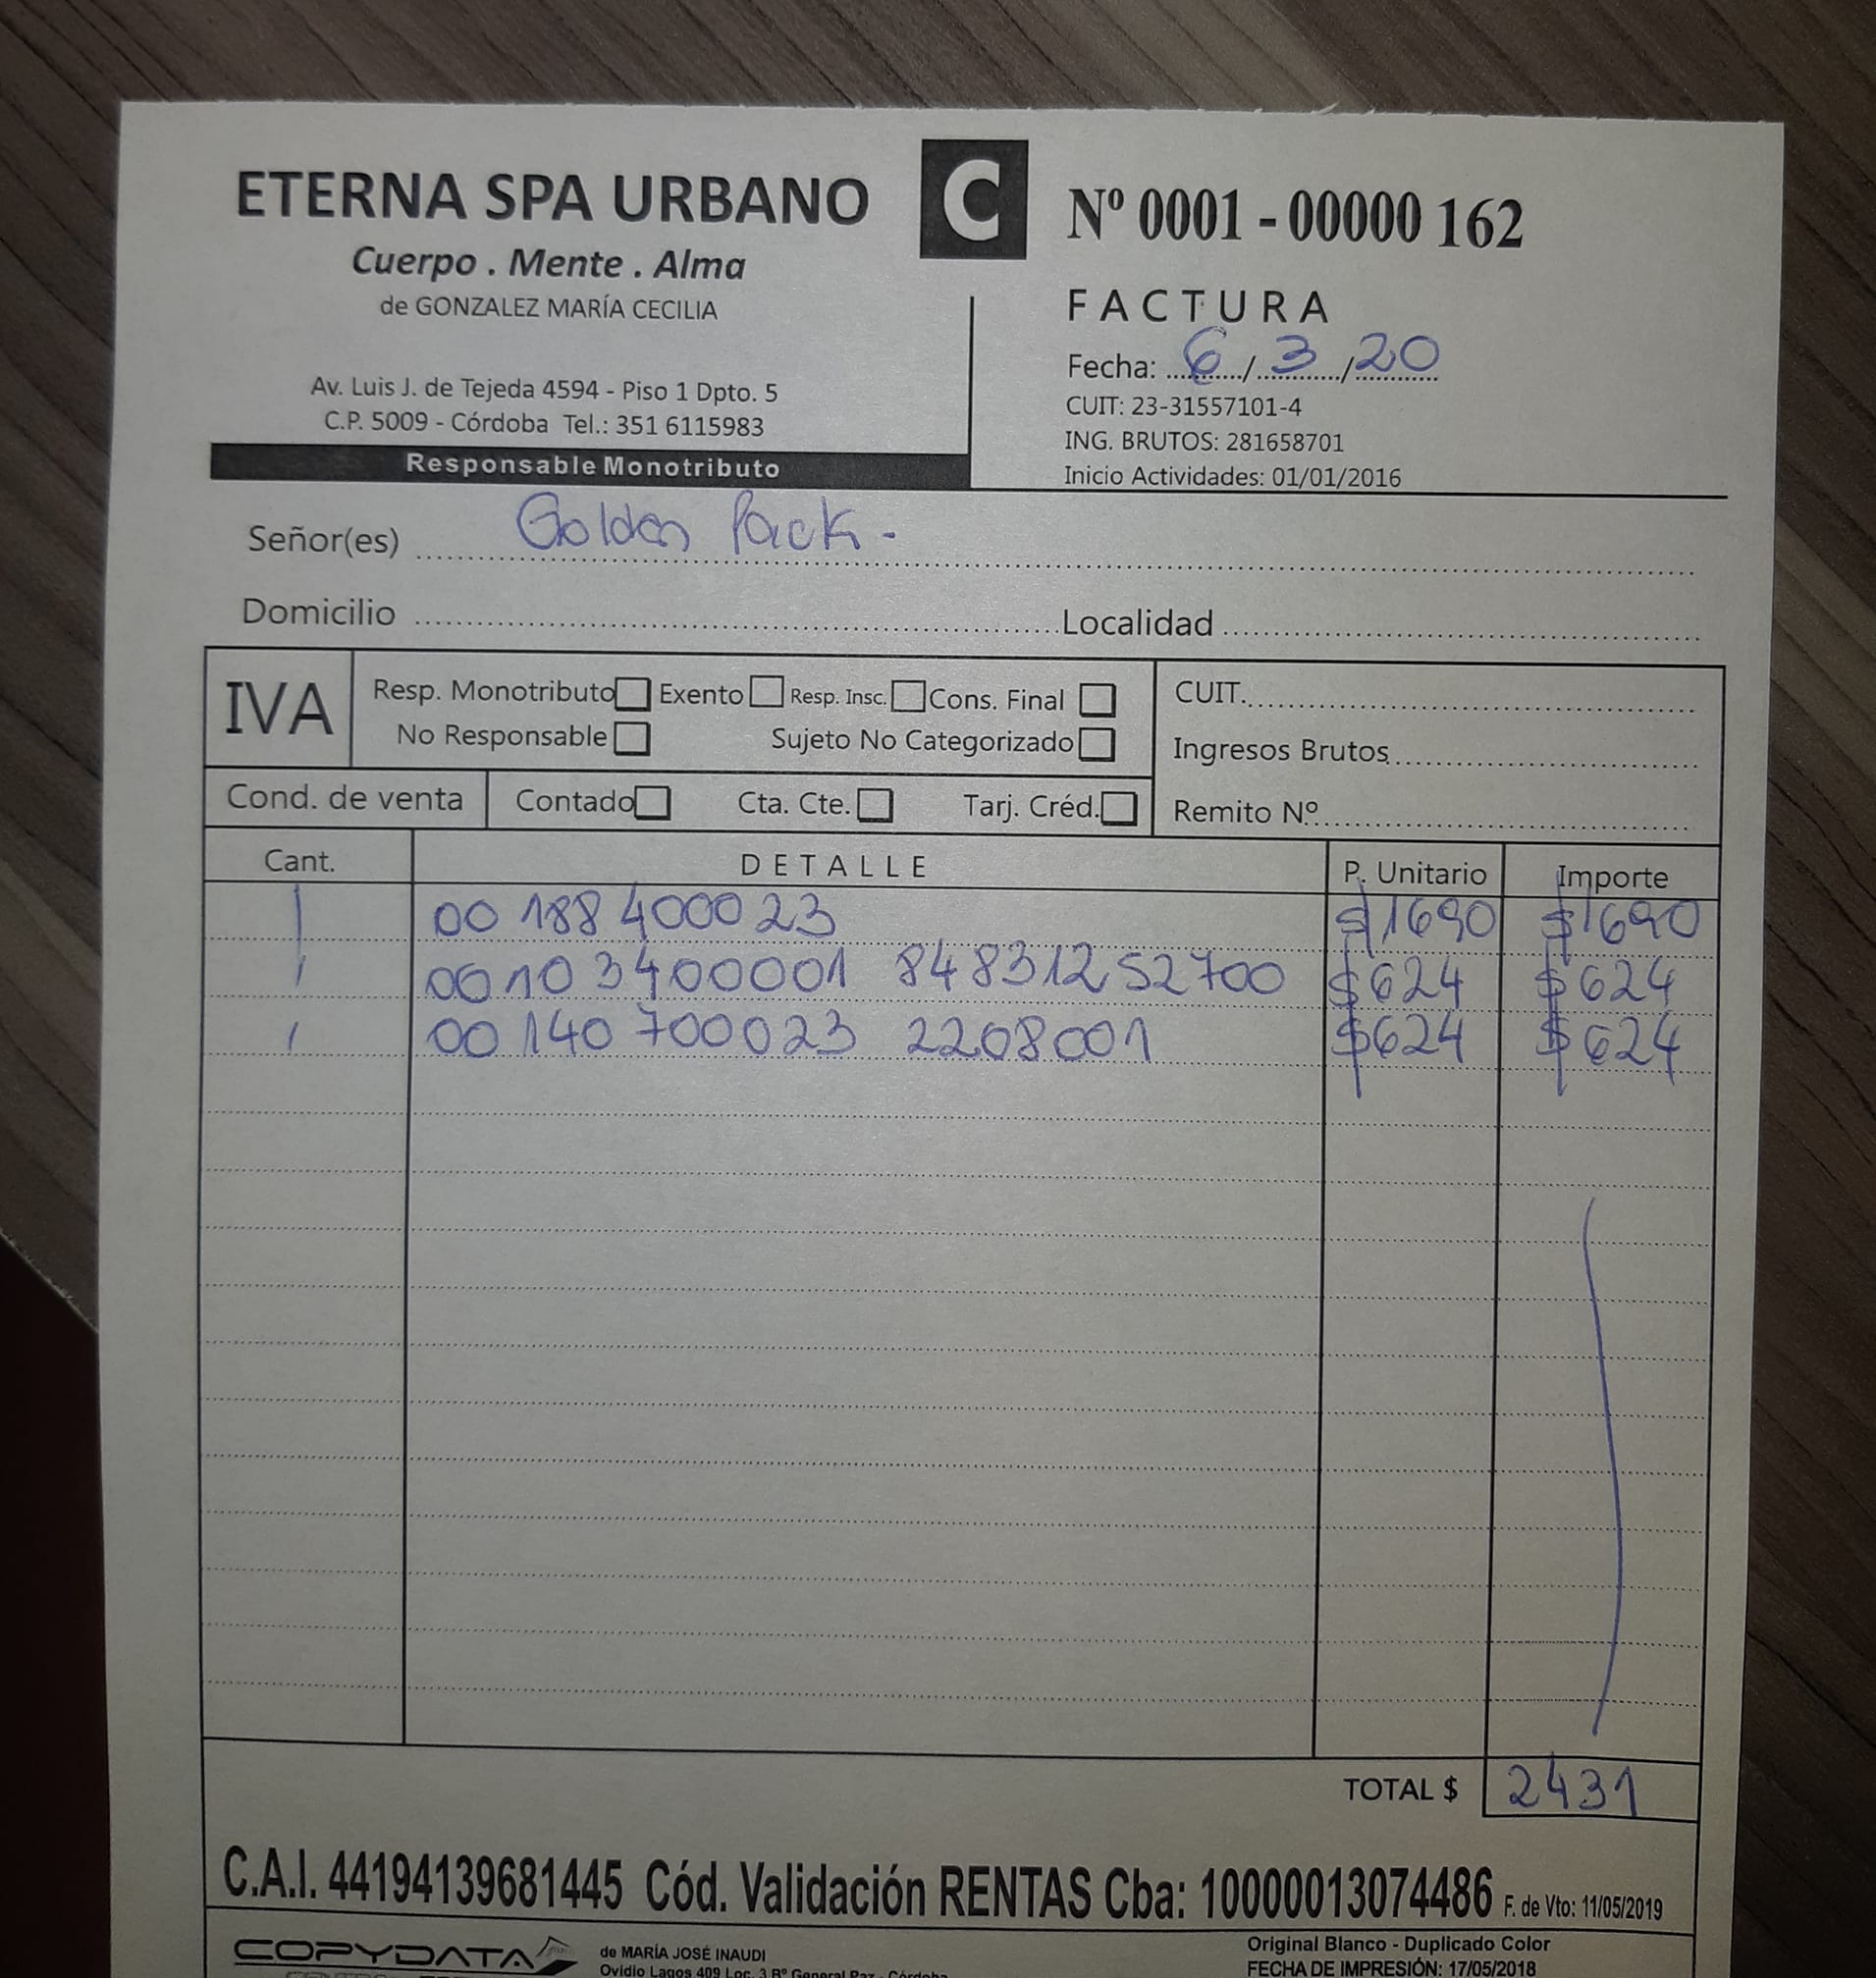 ETERNA SPA URBANO
Cuerpo . Mente . Alma
de GONZALEZ MARÍA CECILIA
Av. Luis J. de Tejeda 4594 - Piso 1 Dpto. 5
C.P. 5009 - Córdoba Tel.: 351 6115983
Responsable Monotributo
C
Nº 0001 - 00000 162
FACTURA
Fecha: 6/3/20
CUIT: 23-31557101-4
ING. BRUTOS: 281658701
Inicio Actividades: 01/01/2016
Señor(es) Golden Pack -
Domicilio Localidad
IVA Resp. Monotributo Exento Resp. Insc. Cons. Final CUIT.
No Responsable Sujeto No Categorizado Ingresos Brutos
Cond. de venta Contado Cta. Cte. Tarj. Créd. Remito Nº
Cant. DETALLE P. Unitario Importe
1 00 188 400023 $1690 $1690
1 0010 3400001 84831252700 $624 $624
1 00 140 700023 2208001 $624 $624
TOTAL $ 2431
C.A.I. 44194139681445 Cód. Validación RENTAS Cba: 10000013074486 F. de Vto: 11/05/2019
COPYDATA de MARÍA JOSÉ INAUDI Original Blanco - Duplicado Color
Ovidio Lagos 409 Loc. 3 Bº General Paz - Córdoba FECHA DE IMPRESIÓN: 17/05/2018